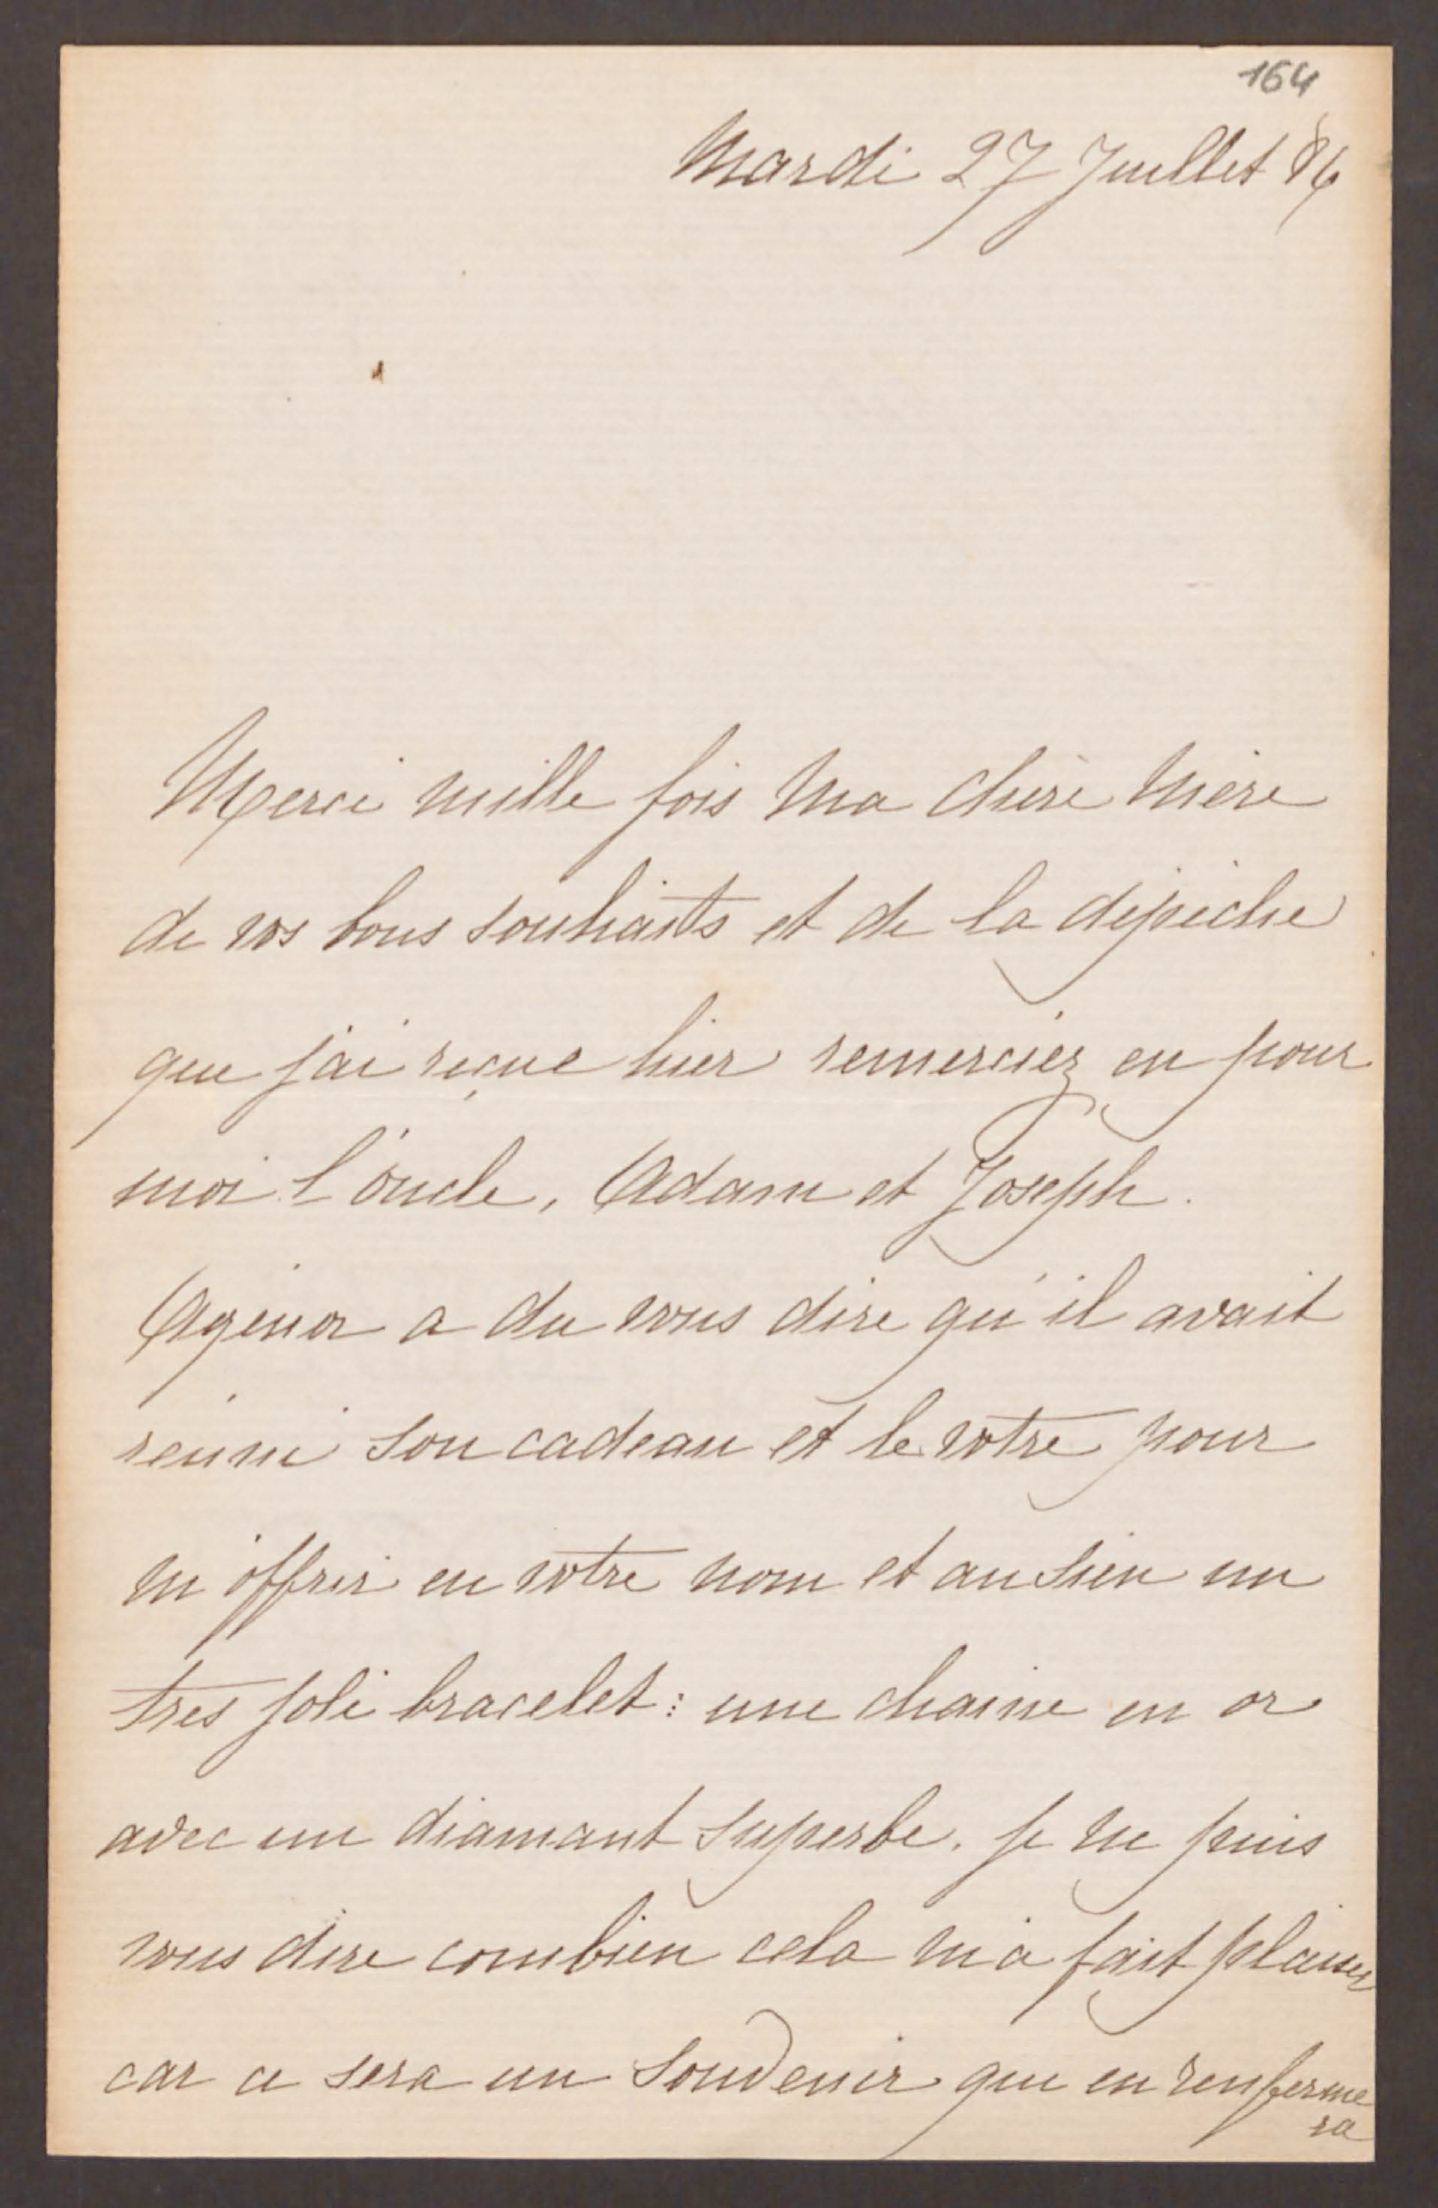 164
Mardi 27 Juillet 86
Merci mille fois ma chère Mère
de vos bons souhaits et de la dépèche
que j'ai reçue hier remerciez en pour
moi l'oncle, Adam et Joseph.
Agénor a du vous dire qu'il avait
réuni son cadeau et le votre pour
m'offrir en votre nom et au sien un
très joli bracelet : une chaine en or
avec un diamant superbe. Je ne puis
vous dire combien cela m'a fait plaisir
car ce sera un souvenir que en renferme
ra